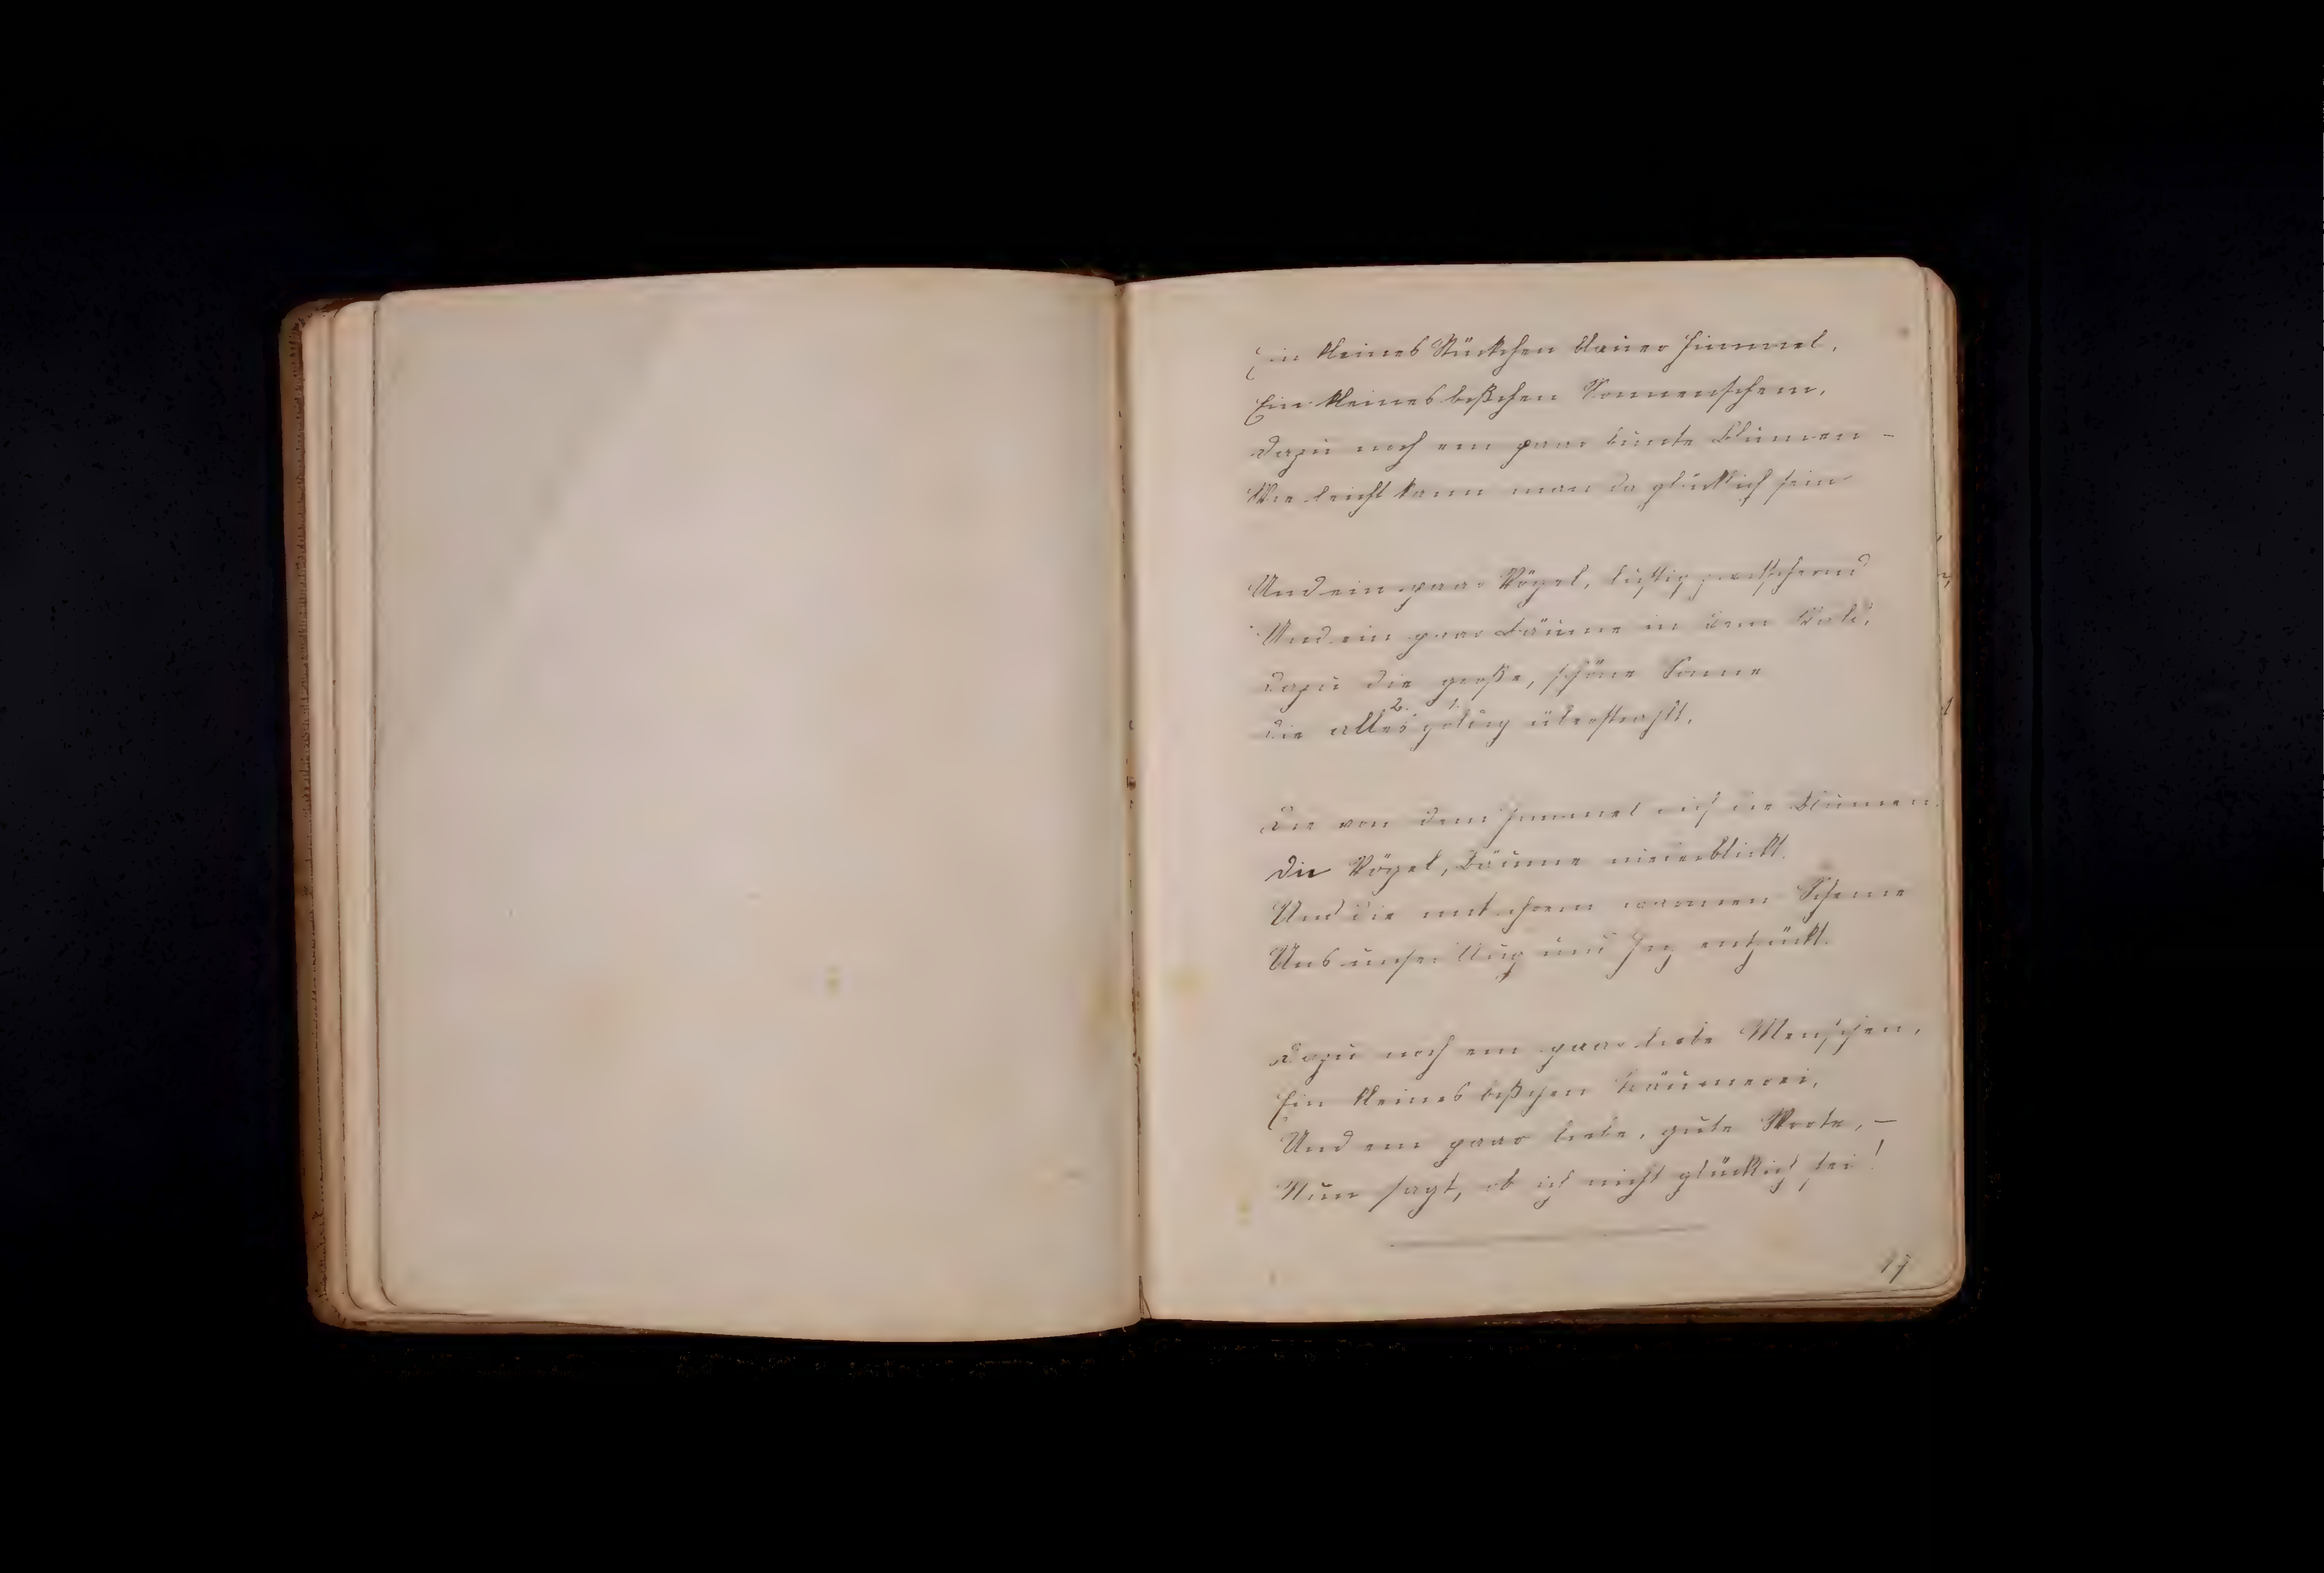 Ein kleines Stückchen blauer Himmel,
Ein kleines bißchen Sonnenschein,
Dazu noch ein paar bunte Blumen –
Wie leicht kann man da glücklich sein
Und ein paar Vögel, lustig zwitschernd
Und ein paar Bäume in dem Wald,
Dazu die große, schöne Sonne
2. 1.
Die alles goldig überstrahlt.
Die von dem Himmel auf die Blumen,
Die Vögel, Bäume niederblickt.
Und die mit ihrem warmen Scheine
Uns unser Aug und Herz entzückt.
Dazu noch ein paar liebe Menschen,
Ein kleines bißchen Träumerei,
Und ein paar liebe, gute Worte, –
Nun sagt, ob ich nicht glücklich sei!
17